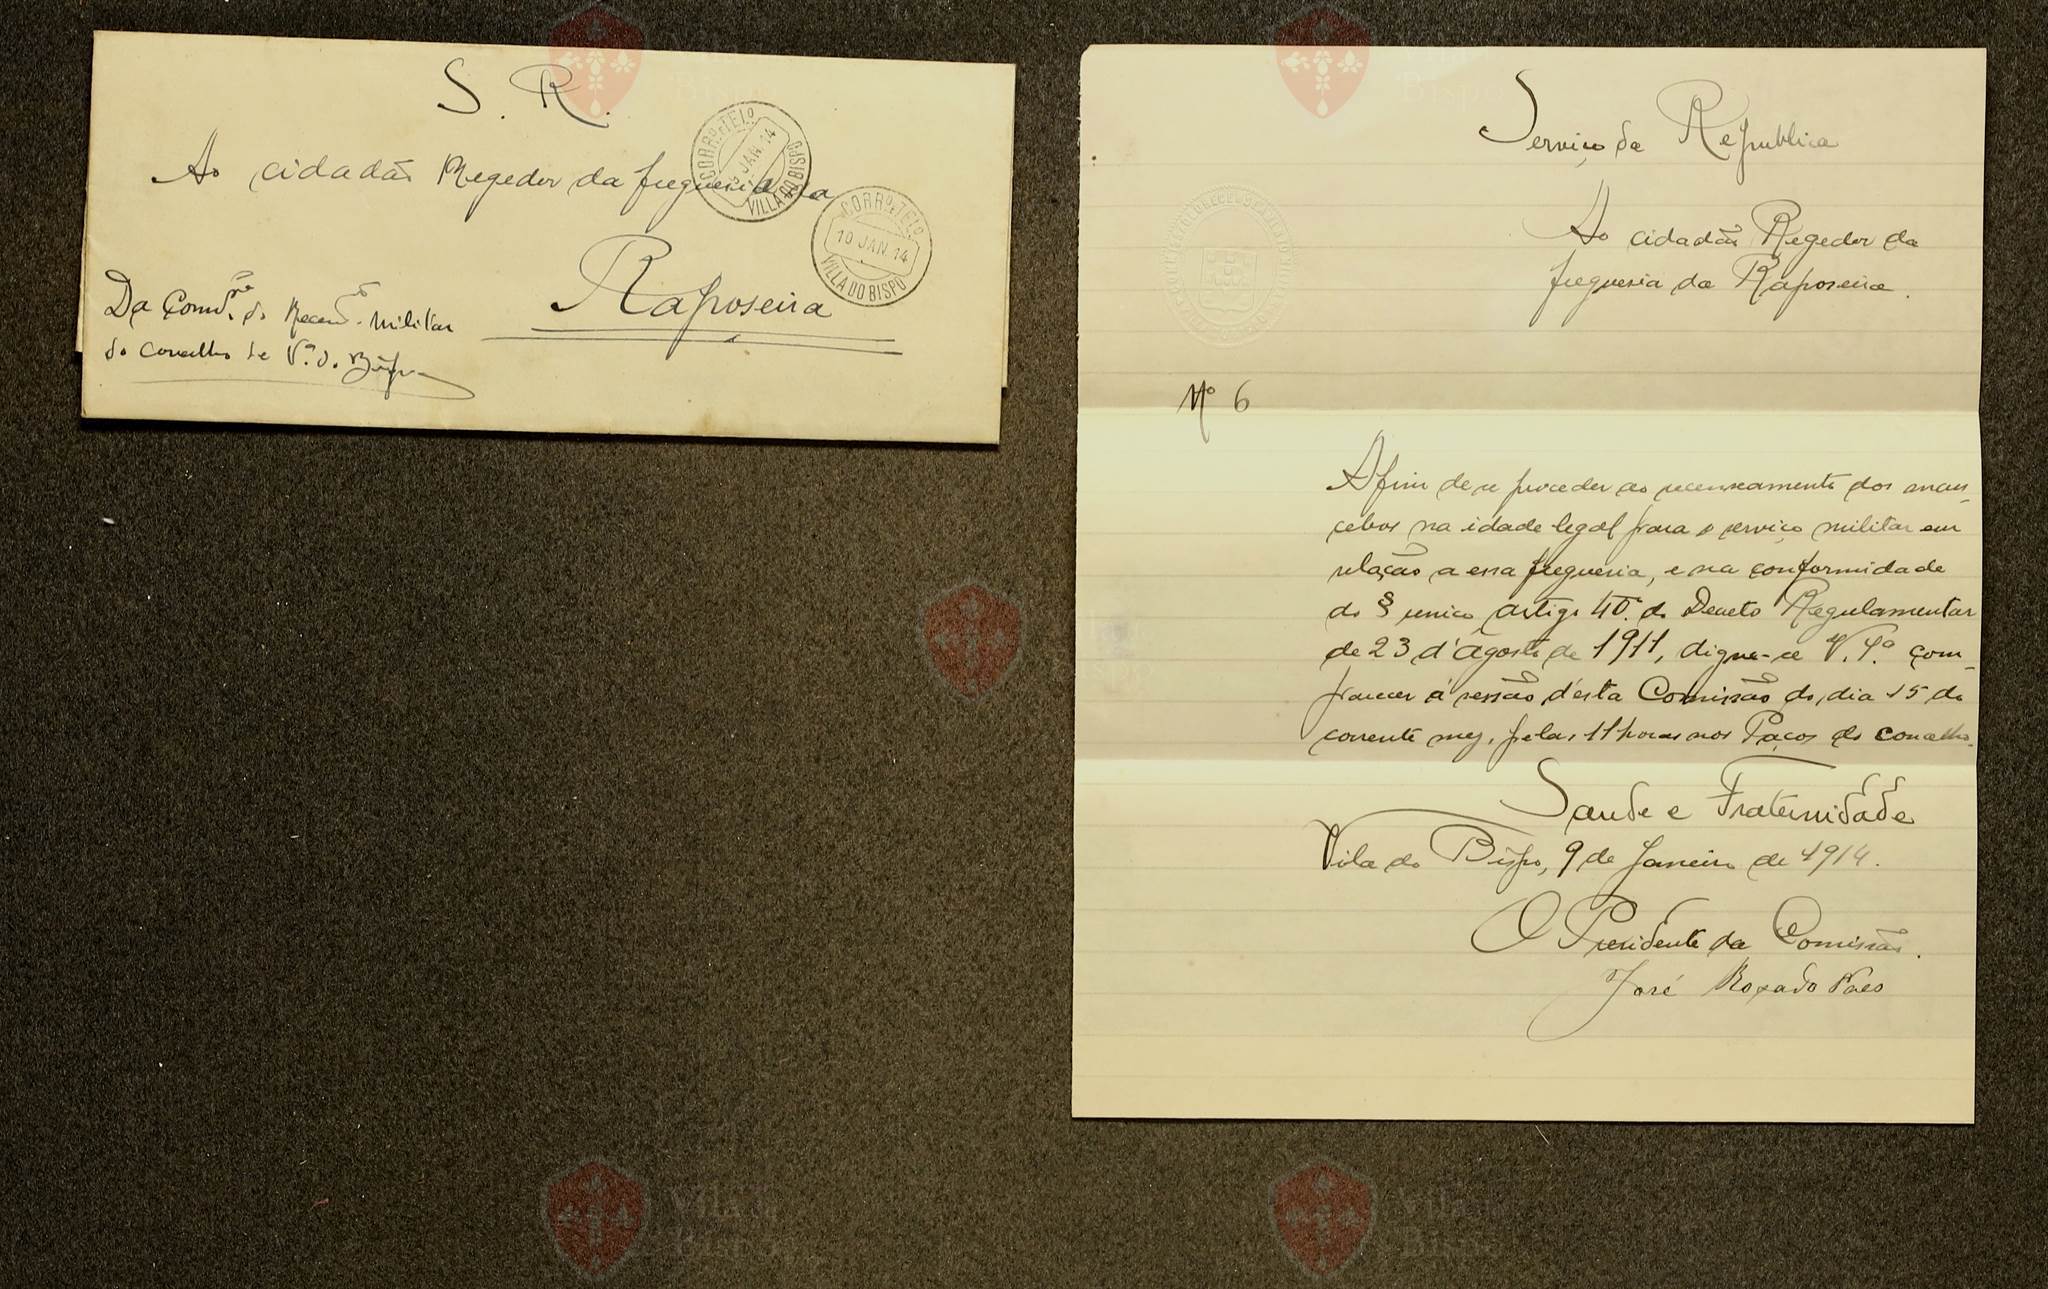 S. R.
Ao cidadão Regedor da freguesia da
Raposeira
Da Comão. do Recenõ. militar
do concelho de Vª. do. Bispo
CORRº E TELº
JAN. 14
VILLA DO BISPO
CORRº E TELº
10 JAN. 14
VILLA DO BISPO
Serviço da Republica
Ao cidadão Regedor da
freguesia da Raposeira.
Nº 6
Afim de se proceder ao recenseamento dos man-
cebos na idade legal para o serviço militar em
relação a essa freguesia, e na conformidade
do § unico artigo 40. do Decreto Regulamentar
de 23 d'Agosto de 1911, digne-se V. com-
parecer á sessão d'esta Comissão do dia 15 do
corrente mez, pelas 11 horas nos Paços do concelho.
Saude e Fraternidade
Vila do Bispo, 9 de Janeiro de 1914.
O Presidente da Comissão.
José Rosado Paes
Vila do
Bispo
Vila do
Bispo